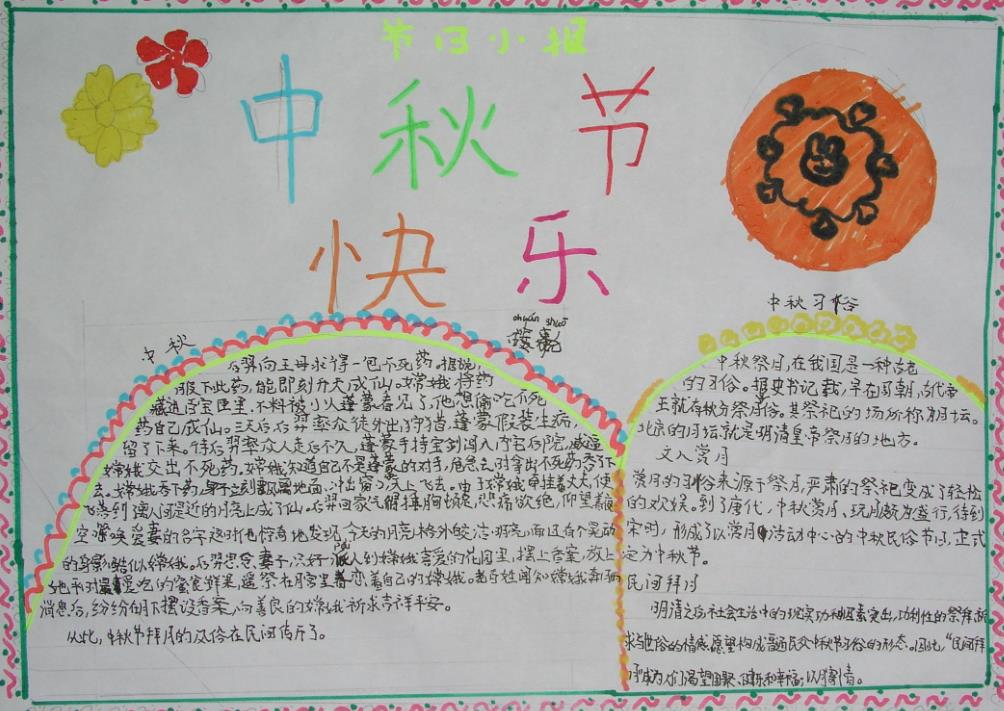 节日小报
中秋节
快乐
chuán shuō
中秋
后羿向王母求得一包不死药。据说,
服下此药,能即刻升天成仙。嫦娥将药
藏进百宝匣里,不料被小人蓬蒙看见了,他想偷吃不死
药自己成仙。三天后后羿率众徒外出狩猎,蓬蒙假装生病,
留了下来。待后羿率众人走后不久,蓬蒙手持宝剑闯入内宅后院,威逼
嫦娥交出不死药。嫦娥知道自己不是蓬蒙的对手,危急之时拿出不死药吞了下
去。嫦娥吞下药,身子立刻飘离地面、冲出窗口,向天上飞去。由于嫦娥牵挂着丈夫,便
飞落到离人间最近的月亮上成了仙。后羿回家气得捶胸顿足,悲痛欲绝,仰望着夜
空呼唤爱妻的名字,这时他惊奇地发现,今天的月亮格外皎洁明亮,而且有个晃动
的身影酷似嫦娥。后羿思念妻子,只好派人到嫦娥喜爱的花园里,摆上香案,放上
她平时最爱吃的蜜食鲜果,遥祭在月宫里眷恋着自己的嫦娥。老百姓闻知嫦娥奔月的
消息后,纷纷在月下摆设香案,向善良的嫦娥祈求吉祥平安。
从此,中秋节拜月的风俗在民间传开了。
中秋习俗
中秋祭月,在我国是一种古老
的习俗。据史书记载,早在周朝,古代帝
王就有秋分祭月俗。其祭祀的场所称为月坛。
北京的月坛就是明清皇帝祭月的地方。
文人赏月
赏月的习俗来源于祭月,严肃的祭祀变成了轻松
的欢娱。到了唐代,中秋赏月、玩月颇为盛行,待到
宋时,形成了以赏月活动中心的中秋民俗节日,正式
定为中秋节。
民间拜月
明清之后,社会生活中的现实功利因素突出,功利性的祭拜、祈
求与世俗的情感、愿望构成普通民众中秋节习俗的形态。因此,“民间拜
月”成为人们渴望团聚、康乐和幸福;以月寄情。